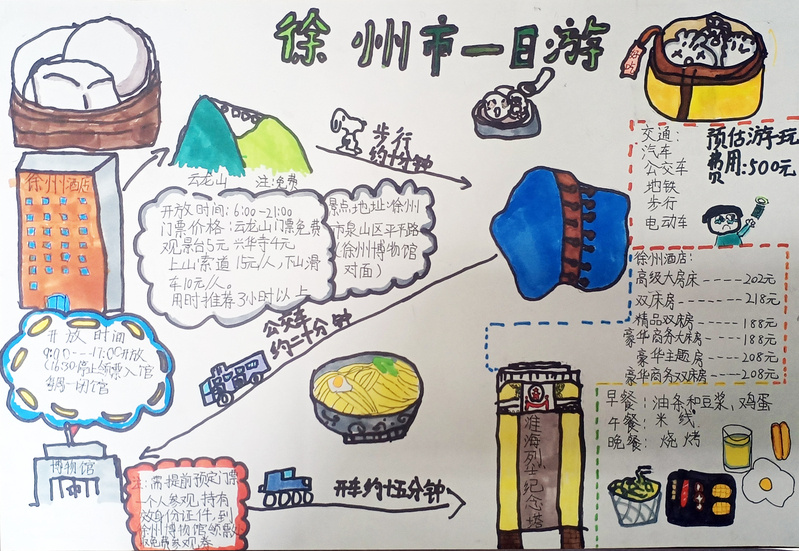 徐州市一日游
好吃
徐州酒店
云龙山 注:免费
步行
约十分钟
开放时间:6:00-21:00
门票价格:云龙山门票免费
观景台5元 兴华寺4元
上山索道15元/人,下山滑
车10元/人。
用时推荐3小时以上
景点地址:徐州
市泉山区平路
(徐州博物馆
对面)
交通:
汽车
公交车
地铁
步行
电动车
预估游玩
费用:500元
徐州酒店:
高级大房床-----202元
双床房-----218元
精品双床房----188元
豪华商务大床房---188元
豪华主题房----208元
豪华商务双床房----208元
公交车
约二十分钟
开放时间
9:00---17:00开放
(16:30停止领票入馆
每周一闭馆
博物馆
注:需提前预定门票
一个人参观,持有
效身份证件,到
徐州博物馆领票
免费参观券
开车约十五分钟
淮海烈士纪念塔
早餐:油条和豆浆、鸡蛋
午餐:米线
晚餐:烧烤